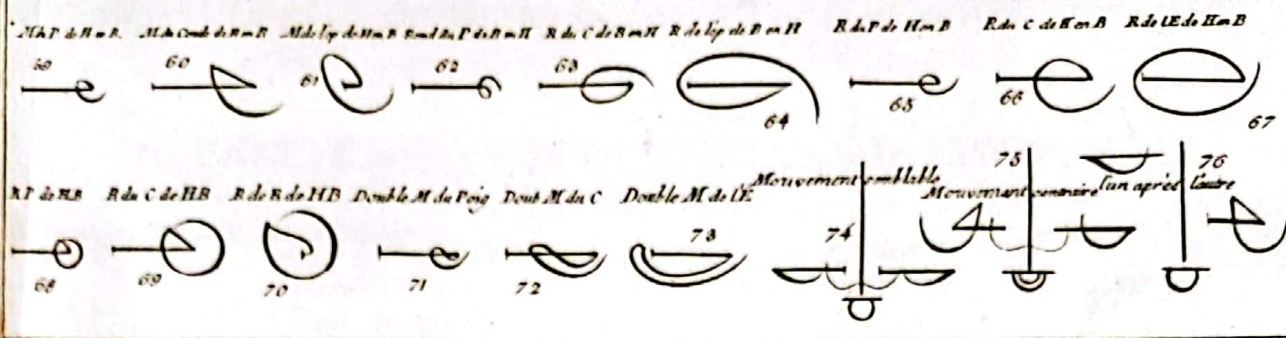 M du P de H en B. M du Coude de H en B M de l'ep de H en B Rond du P de B en H R du C de B en H R de l'ép de B en H R du P de H en B R du C de H en B R de lE de H en B
59 60 61 62 63 64 65 66 67
75 76
R P de H B R du C de HB R de HB Double M du Poig Doub M du C Double M de lE Mouvement semblable Mouvement contraire l'un après l'autre
68 69 70 71 72 73 74